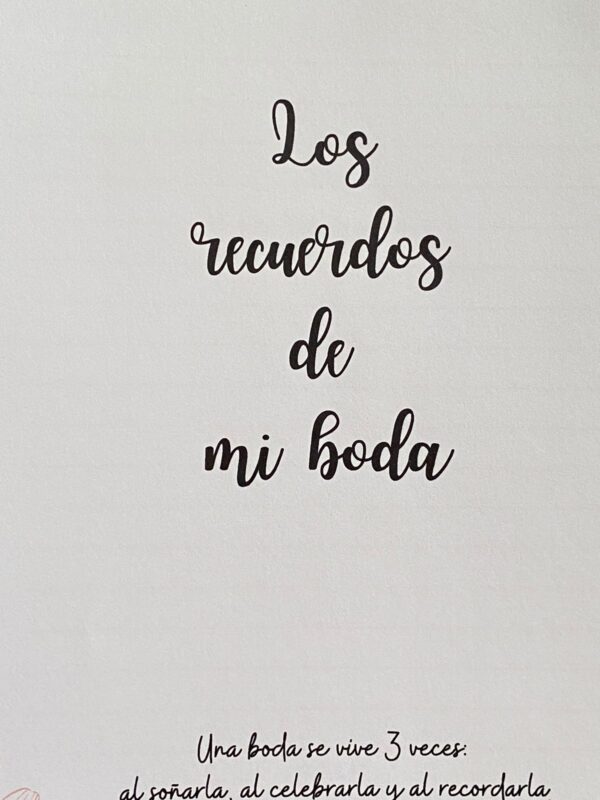 Los
recuerdos
de
mi boda
Una boda se vive 3 veces:
al soñarla, al celebrarla y al recordarla